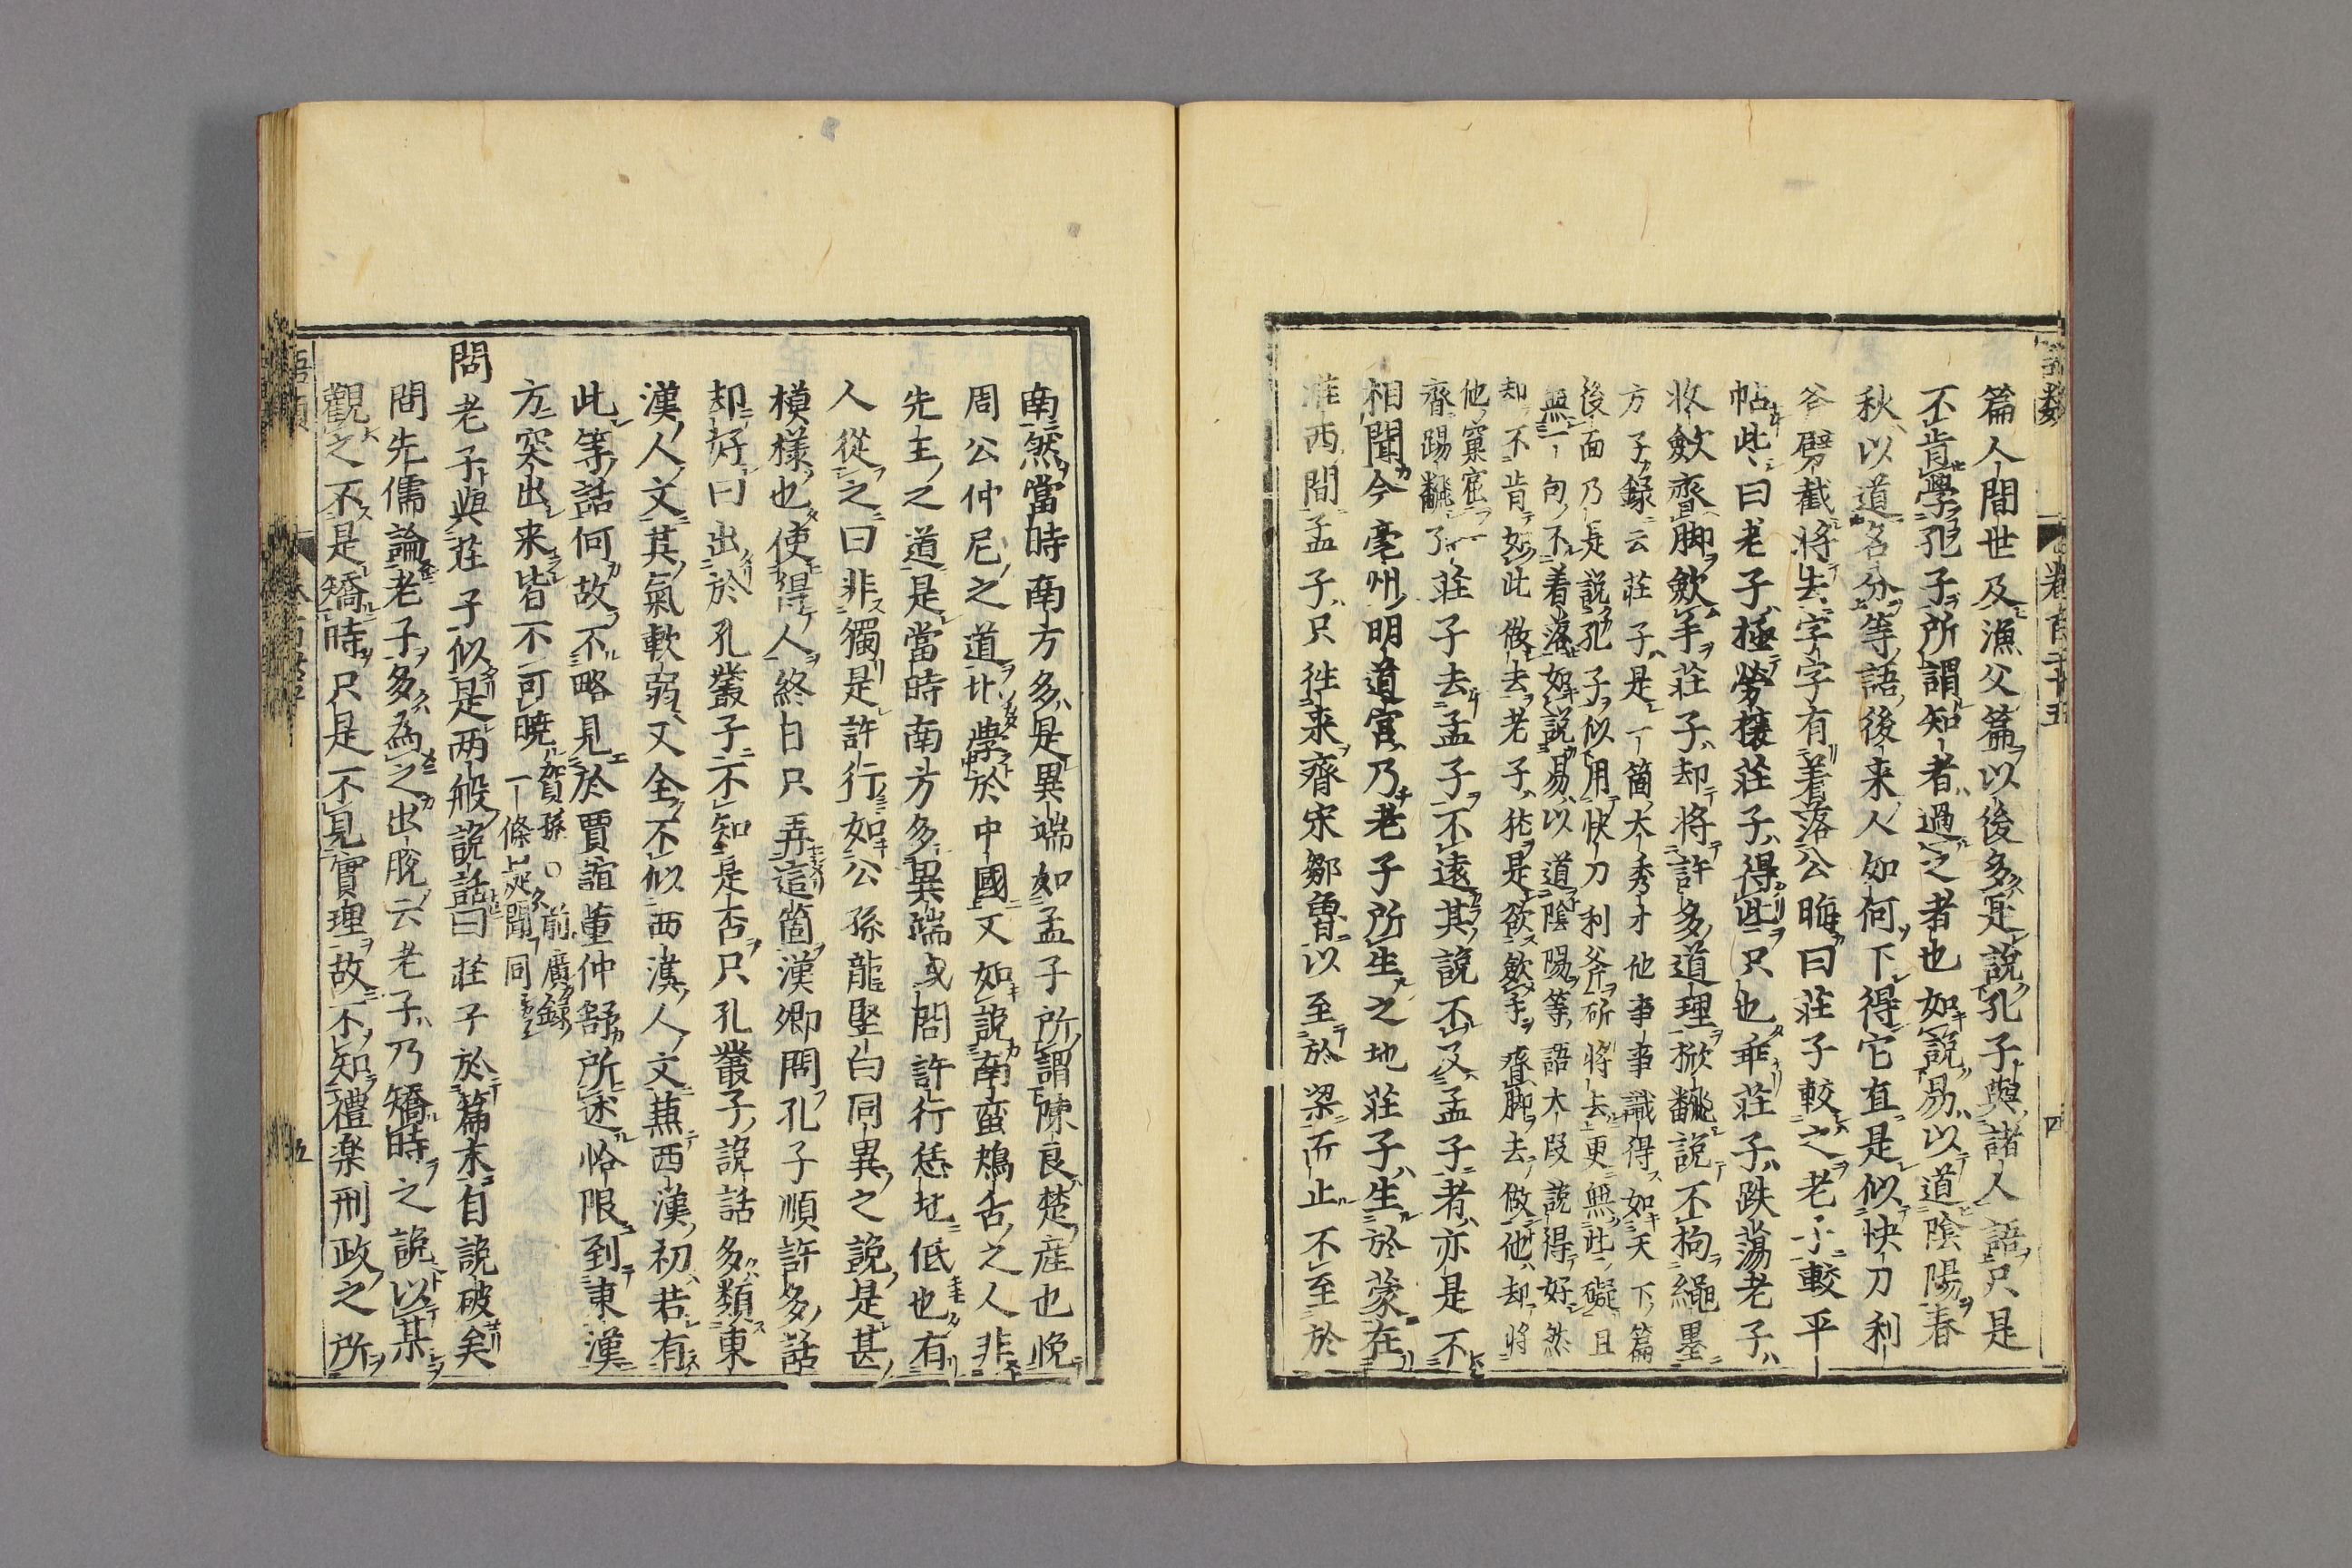 篇人間世及漁父篇以後多是説孔子與諸人語只是
不肯學孔子所謂知者過之者也如説易以道陰陽春
秋以道名分等語後来人如何下得它直是似快刀利
斧劈截將去字字有着落公晦曰莊子較之老子較平
帖些曰老子極勞攘莊子得些只也乖莊子跌蕩老子
收斂齊脚斂手莊子却將許多道理掀飜説不拘繩墨
方子錄云莊子是一箇大秀才他事事識得如天下篇
後面乃是説孔子似用快刀利斧斫將去更無些礙且
無一句不着落如説易以道陰陽等語大段説得好然
却不肯如此做去老子猶是欲斂手齊脚去做他却將
他窠窟一
齊踢飜了
莊子去孟子不遠其説不及孟子者亦是不
相聞今亳州明道宮乃老子所生之地莊子生於蒙在
淮西間孟子只徃来齊宋鄒魯以至於梁而止不至於
卷百二十五
四
南然當時南方多是異端如孟子所謂陳良楚産也悅
周公仲尼之道北學於中國又如説南蛮鴃舌之人非
先王之道是當時南方多異端或問許行恁地低也有
人從之曰非獨是許行如公孫龍堅白同異之説是甚
模樣也使得人終日只弄這箇漢卿問孔子順許多話
却好曰出於孔叢子不知是否只孔叢子説話多類東
漢人文其氣軟弱又全不似西漢人文蕪西漢初若有
此等話何故不略見於賈誼董仲舒所述恰限到東漢
方突出来皆不可曉
賀孫○前廣錄
一條疑聞同
問老子與莊子似是两般説話曰莊子於篇末自説破矣
問先儒論老子多為之出脫云老子乃矯時之説以某
觀之不是矯時只是不見實理故不知禮楽刑政之所
五